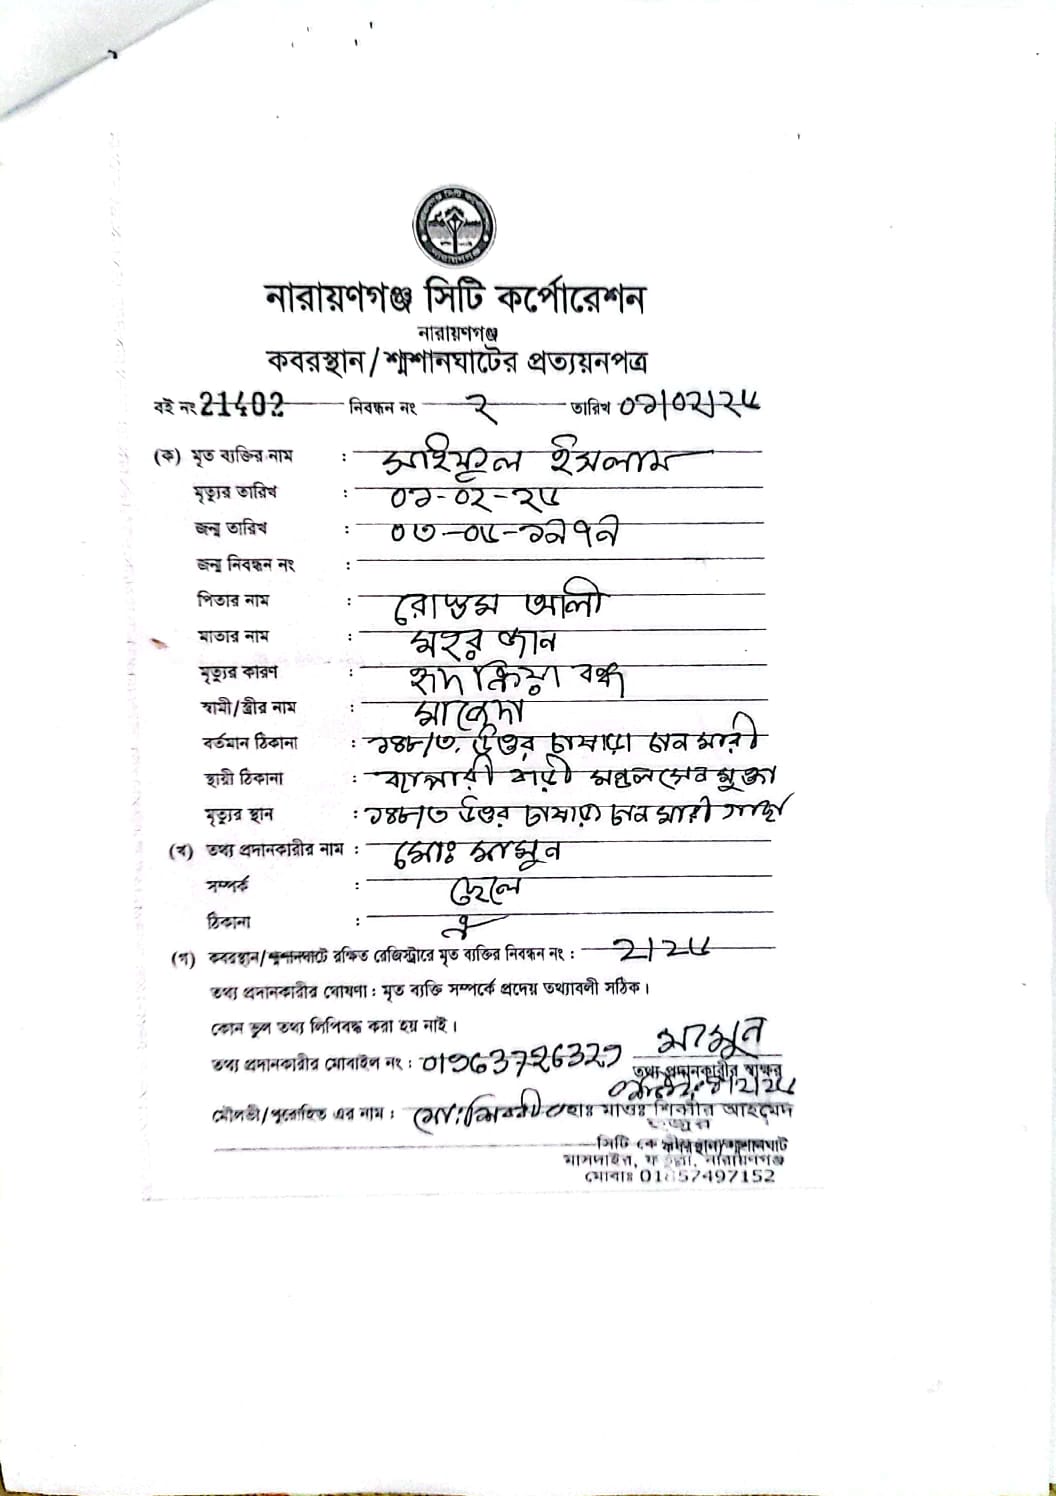 নারায়ণগঞ্জ সিটি কর্পোরেশন
নারায়ণগঞ্জ
কবরস্থান/শ্মশানঘাটের প্রত্যয়নপত্র
বই নং 21402 নিবন্ধন নং ২ তারিখ ০১/০২/২৫
(ক) মৃত ব্যক্তির নাম : সাইফুল ইসলাম
মৃত্যুর তারিখ : ০১-০২-২৫
জন্ম তারিখ : ০৩-০৫-১৯৭৯
জন্ম নিবন্ধন নং :
পিতার নাম : রোস্তম আলী
মাতার নাম : মহর জান
মৃত্যুর কারণ : হৃদ ক্রিয়া বন্ধ
স্বামী/স্ত্রীর নাম :
বর্তমান ঠিকানা : ১৪৮/৩, উত্তর চাষাড়া চান মারী
স্থায়ী ঠিকানা : ব্যাপারী বাড়ী
মৃত্যুর স্থান : ১৪৮/৩ উত্তর চাষাড়া চান মারী
(খ) তথ্য প্রদানকারীর নাম : মোঃ মামুন
সম্পর্ক : ছেলে
ঠিকানা : ঐ
(গ) কবরস্থান/শ্মশানঘাটে রক্ষিত রেজিস্ট্রারে মৃত ব্যক্তির নিবন্ধন নং : ২/২৫
তথ্য প্রদানকারীর ঘোষণা : মৃত ব্যক্তি সম্পর্কে প্রদেয় তথ্যাবলী সঠিক।
কোন ভুল তথ্য লিপিবদ্ধ করা হয় নাই।
মামুন
তথ্য প্রদানকারীর মোবাইল নং :
তথ্য প্রদানকারীর স্বাক্ষর
মৌলভী/পুরোহিত এর নাম :
সিটি কবরস্থান/শ্মশানঘাট
মাসদাইর, নারায়ণগঞ্জ